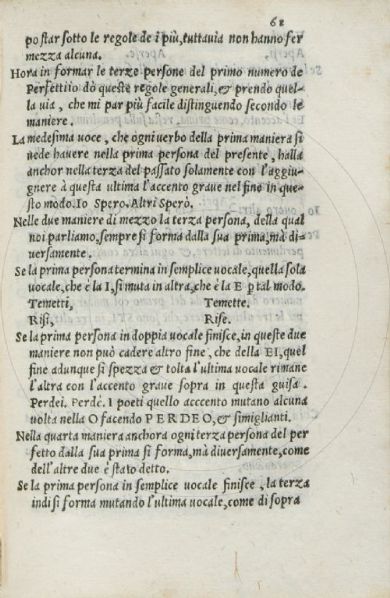 68
po star sotto le regole de i più, tuttavia non hanno fer
mezza alcuna.
Hora in formar le terze persone del primo numero de
Perfettiio dò queste regole generali, & prendo quel-
la via, che mi par più facile distinguendo secondo le
maniere.
La medesima voce, che ogni verbo della prima maniera si
vede havere nella prima persona del presente, halla
anchor nella terza del passato solamente con l'aggiu-
gnere à questa ultima l'accento grave nel fine in que-
sto modo. Io Spero. Altri Sperò.
Nelle due maniere di mezzo la terza persona, della qual
noi parliamo, sempre si forma dalla sua prima, mà di-
versamente.
Se la prima persona termina in semplice vocale, quella sola
vocale, che è la I, si muta in altra, che è la E p tal modo.
Temetti, Temette.
Risi, Rise.
Se la prima persona in doppia vocale finisce, in queste due
maniere non può cadere altro fine, che della EI, quel
fine adunque si spezza & tolta l'ultima vocale rimane
l'altra con l'accento grave sopra in questa guisa.
Perdei. Perdé. I poeti quello acccento mutano alcuna
volta nella O facendo PERDEO, & simiglianti.
Nella quarta maniera anchora ogni terza persona del per
fetto dalla sua prima si forma, mà diversamente, come
dell'altre due è stato detto.
Se la prima persona in semplice vocale finisce, la terza
indi si forma mutando l'ultima vocale, come di sopra